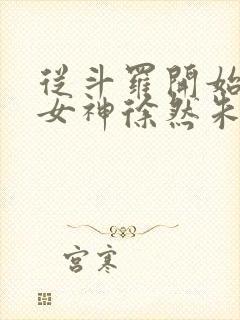 從斗羅開始
女神徐然朱
宮寒